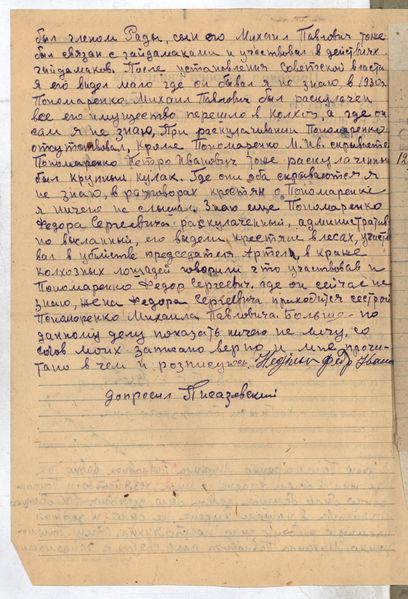 был членом Рады, сын его Михаил Павлович тоже
был связан с гайдамаками и участвовал в действиях
гайдамаков. После установления Советской власти
я его видел мало где он бывал я не знаю в 1930г
Пономаренко Михаил Павлович был раскулачен
все его имущество перешло в Колхоз, а где он
сам я не знаю, При раскулачивании Пономаренко
отсутствовал, Кроме Пономаренко М.П. скрывается
Пономаренко Петро Иванович тоже раскулаченный
был крупный кулак. Где они оба скрываются я
не знаю, в разговорах крестьян о Пономаренке
я ничего не слышал. Знаю еще Пономаренко
Федора Сергеевича раскулаченный, административ
но высланный, его видели крестьяне в лесах, участво
вал в убийстве председателя Артели, в краже
колхозных лошадей говорили что участвовал и
Пономаренко Федор Сергеевич, где он сейчас не
знаю, жена Федора Сергеевича приходится сестрой
Пономаренко Михаила Павловича. Больше по
данному делу показать ничего не могу, со
слов моих записано верно и мне прочи-
тано в чем и расписуюсь.
допросил
12